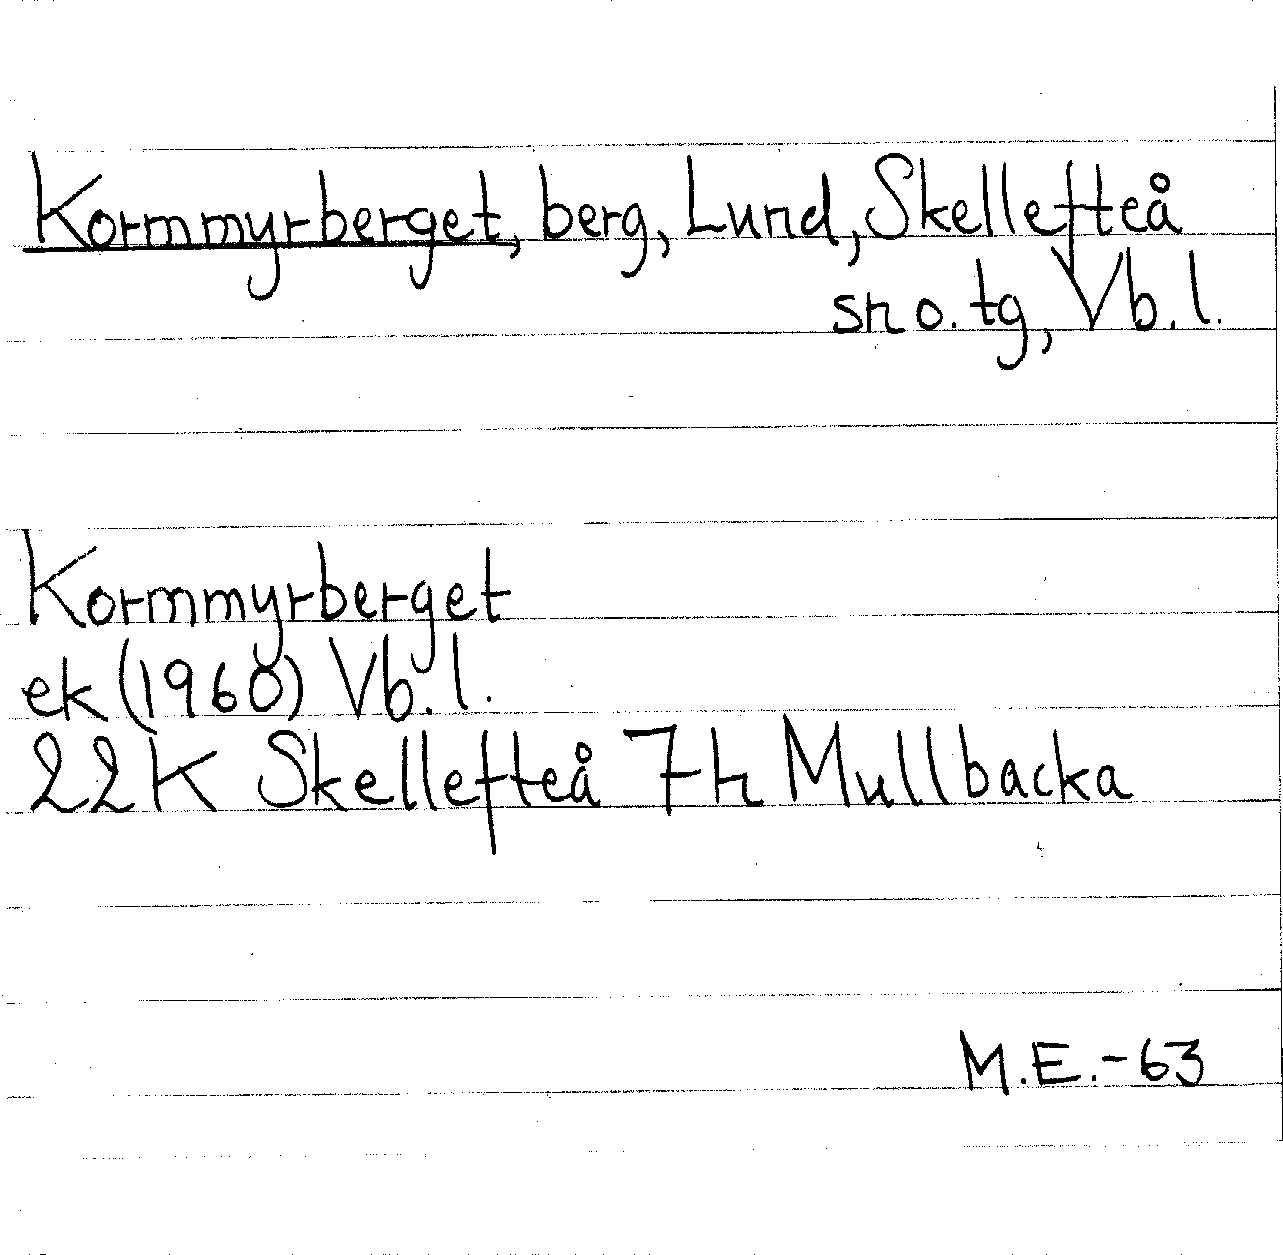 Kormmyrberget, berg, Lund, Skellefteå
sn o. tg, Vb.l.
Kormmyrberget
ek (1960) Vb.l.
22K Skellefteå 7h Mullbacka
M.E.-63